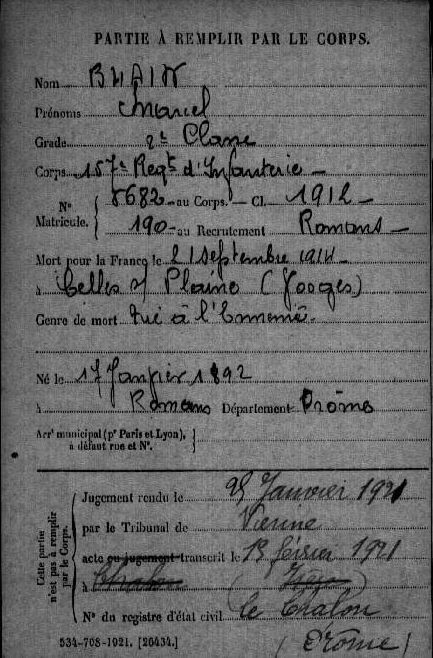 PARTIE À REMPLIR PAR LE CORPS.
Nom BHAIN
Prénoms Marcel
Grade 2e Classe
Corps 157e Regt d'Infanterie
No Matricule. { 8682 au Corps. — Cl. 1912
190 au Recrutement Romans
Mort pour la France le 21 Septembre 1914
à Celles s/ Plaine (Vosges)
Genre de mort Tué à l'Ennemi
Né le 17 Janvier 1892
à Romans Département Drôme
Arrt municipal (pr Paris et Lyon), à défaut rue et No.
Cette partie n'est pas à remplir par le Corps.
Jugement rendu le 25 Janvier 1921
par le Tribunal de Vienne
acte ou jugement transcrit le 13 février 1921
à Chalon
No du registre d'état civil le Chalon
534-708-1921. [26434.] (Drôme)